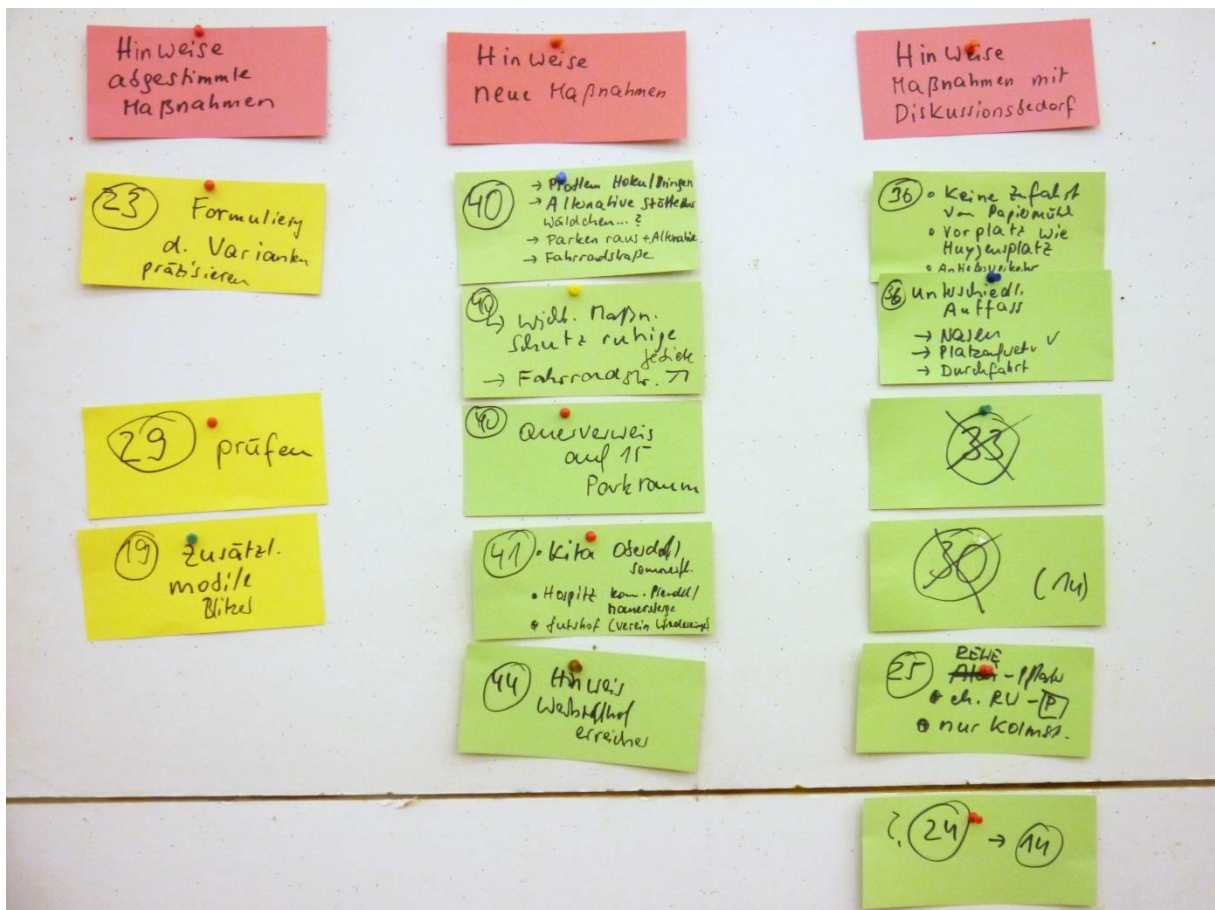 Hinweise
abgestimmte
Maßnahmen
23
Formulierg
d. Varianten
präzisieren
29 prüfen
19 Zusätzl.
mobile
Blitzer
Hinweise
neue Maßnahmen
40
→ Problem Holen/Bringen
→ Alternative
wäldchen...?
→ Parken raus + Alternative
→ Fahrradstraße
40
→ wicht. Maßn.
Schutz ruhige
→ Fahrradstr. ↗
40 Querverweis
auf 15
Parkraum
41 • Kita Oberdorf/
• Hospitz kom.
• Gutshof (Verein
44 Hinweis
Wertstoffhof
erreichen
Hinweise
Maßnahmen mit
Diskussionsbedarf
36 • Keine Zufahrt
von Papiermühl
• Vorplatz wie
Huygensplatz
• Anliefverkehr
36 unterschiedl.
Auffass
→ Nasen ✓
→ Platzaufwetv
→ Durchfahrt
33
30 (14)
REWE
25 - Pflaster
• eh. RU - P
• nur Kolmst.
?, 24 → 14